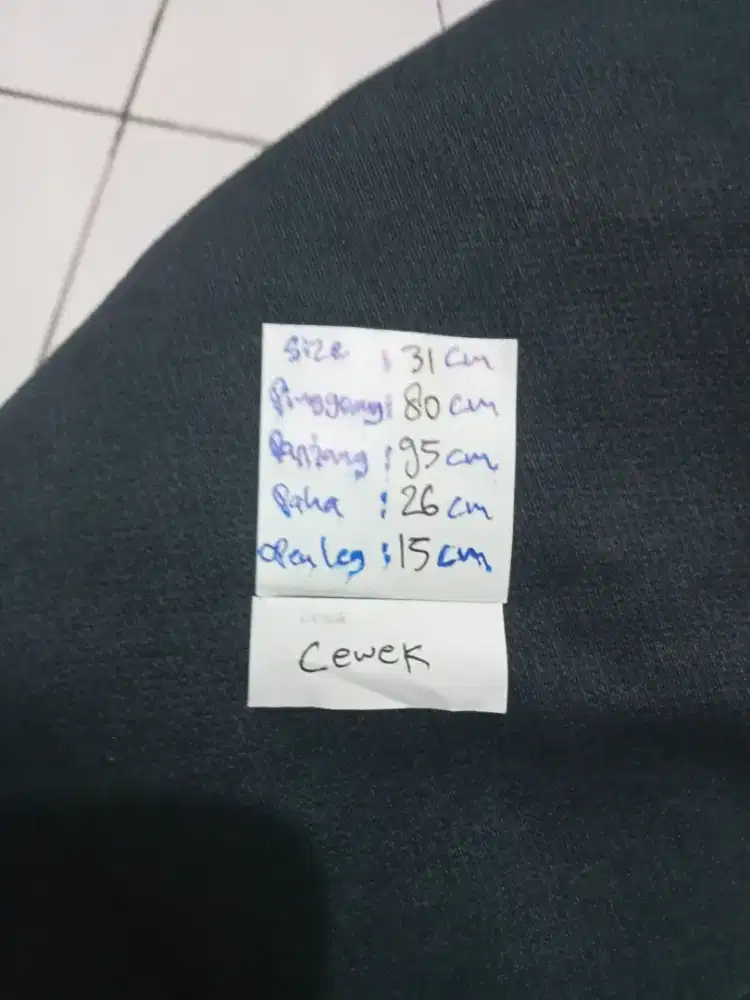 Size : 31 cm
Pinggang : 80 cm
Panjang : 95 cm
Paha : 26 cm
open leg : 15 cm
Cewek